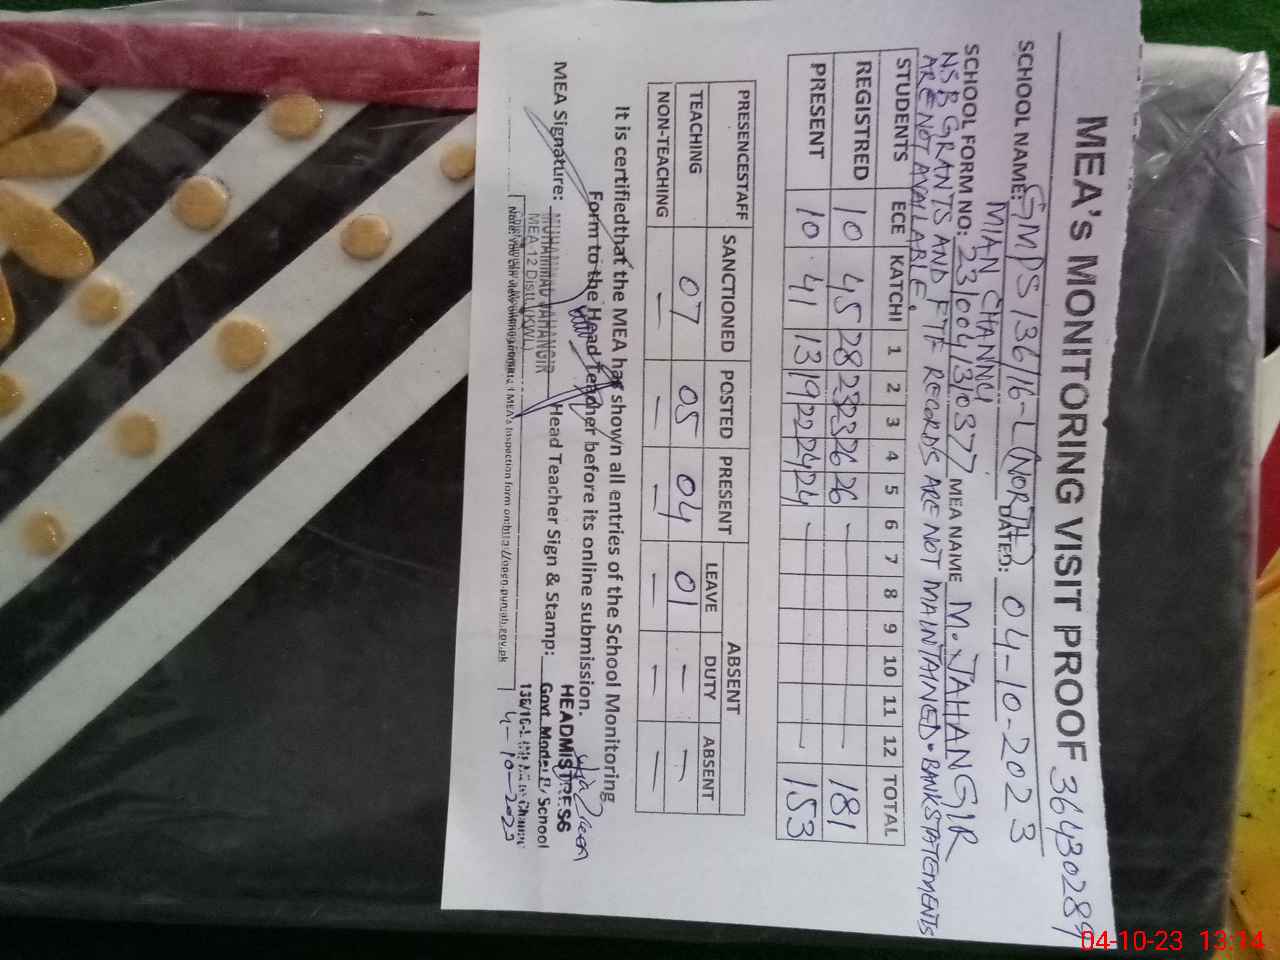 MEA'S MONITORING VISIT PROOF 36430289
SCHOOL NAME: GMPS 136/16-L (NORTH) DATED: 04-10-2023
MIAN CHANNU
SCHOOL FORM NO: 231004/310377 MEA NAME M. JAHANGIR
NSB GRANTS AND FTF RECORDS ARE NOT MAINTAINED. BANK STATEMENTS
ARE NOT AVAILABLE.
STUDENTS ECE KATCHI 1 2 3 4 5 6 7 8 9 10 11 12 TOTAL
REGISTRED 10 45 28 23 23 26 26 — — 181
PRESENT 10 41 13 19 22 24 24 — — 153
ABSENT
PRESENCESTAFF SANCTIONED POSTED PRESENT LEAVE DUTY ABSENT
TEACHING 07 05 04 01 — —
NON-TEACHING — — — — — —
It is certifiedthat the MEA has shown all entries of the School Monitoring
Form to the Head Teacher before its online submission.
MEA Signature: Head Teacher Sign & Stamp:
MUHAMMAD JAHANGIR
MEA 12 Distt. (KWL)
HEADMISTRESS
Govt. Model P/School
136/16-L
4-10-2023
MEA's Inspection form on:http://open.punjab.gov.pk
04-10-23 13:14